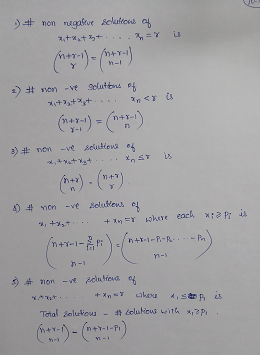 1) # non negative solutions of
x₁+x₂+x₃+ . . . . . xₙ = r is
(n+r-1 r) = (n+r-1 n-1)
2) # non -ve solutions of
x₁+x₂+x₃+ . . . . xₙ < r is
(n+r-1 r-1) = (n+r-1 n)
3) # non -ve solutions of
x₁+x₂+x₃+ . . . . . xₙ ≤ r is
(n+r n) = (n+r r)
4) # non -ve solutions of
x₁+x₂+ . . . . . . +xₙ = r where each xᵢ ≥ pᵢ is
(n+r-1-∑ᵢ₌₁ⁿ pᵢ n-1) = (n+r-1-p₁-p₂- . . . . -pₙ n-1)
5) # non -ve solutions of
x₁+x₂+ . . . . . . +xₙ = r where x₁ ≤ p₁ is
Total solutions - # solutions with x₁ ≥ p₁.
(n+r-1 n-1) - (n+r-1-p₁ n-1)